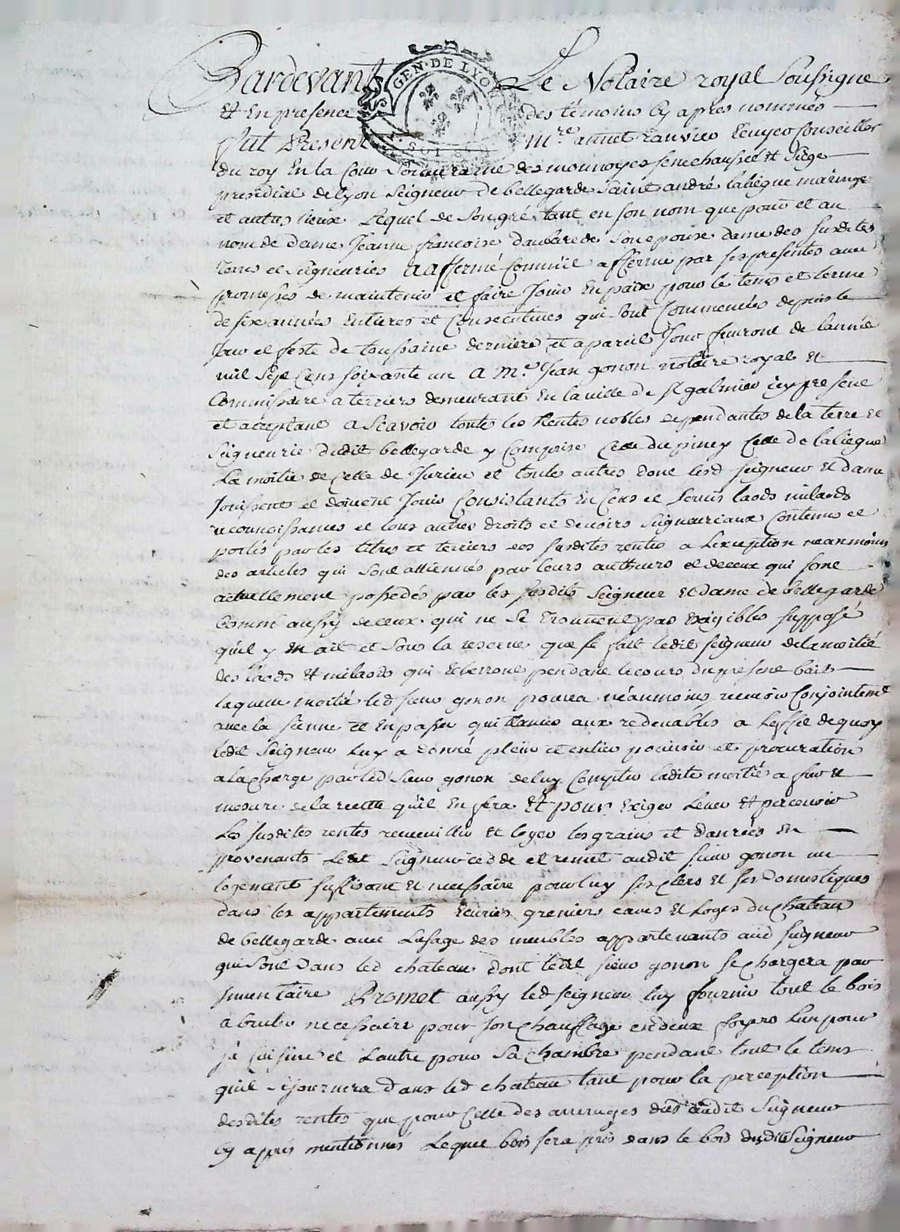 Pardevant Le Notaire royal Soussigné
GEN · DE LYON
Et En presence des témoins Cy apres nommés
fut Present M.re annet Ranvier Conseiller
du roy En la Cour Souveraine des monnoyes senechaussée et Siège
presidial de Lyon Seigneur de bellegarde Saint andré labiegue maringe
et autres lieux Lequel de Son gré tant en son nom que pour et au
nom de dame Jeanne françoise daubarede Son epouse dame des susdites
Terres et Seigneuries a affermé Comme il afferme par ses presentes avec
promesses de maintenir et faire Jouir En paix pour le tems et terme
de six années Entieres et Consecutives qui Sont Commencées depuis le
Jour et feste de toussaint derniere et a pareil Jour finiront de lannée
mil Sept Cens Soixante un a M.e Jean gonon notaire royal et
Commissaire a terriers demeurant En la ville de St galmier icy present
et acceptant a Scavoir toutes les Rentes nobles dependantes de la terre et
Seigneurie dudit bellegarde y Comprise Celle du piney Celle de laliegue
La moitié de Celle de Jurieu et toute autres dont lesd Seigneur et dame
Jouissent et doivent Jouir Consistants En Cens et Servis laods milaods
reconnoissances et tous autres droits et devoirs Seigneuriaux Contenus et
portés par les titres et terriers des susdites rentes a Lexception neanmoins
des articles qui Sont alliennés par leurs autheurs et de ceux qui sont
actuellement possedés par les susdits Seigneur et dame de bellegarde
Comme aussy de ceux qui ne Se trouvent pas Exigibles supposé
quil y En ait et sous la reserve que se fait ledit seigneur de la moitié
des laods et milaods qui Echerront pendant le cours du present bail
laquelle moitié led sieur gonon pourra néanmoins recevoir Conjointem.t
avec la sienne et En passer quittances aux redevables a Leffet de quoy
ledit Seigneur Luy a donné plein et entier pouvoir et procuration
a la charge par led Sieur gonon de luy Compter ladite moitié a fur et
mesure de la recette quil En fera Et pour Exiger Lever et percevoir
Les susdites rentes recueuillir et loger les grains et danrées En
provenants Ledit Seigneur cede et remet audit Sieur gonon un
logement suffisant et necessaire pour luy ses clers et ses domestiques
dans les appartements Ecuries greniers caves et Loges du Chateau
de bellegarde avec Lusage des meubles appartenants aud Seigneur
qui Sont dans led chateau dont ledit sieur gonon se chargera par
Inventaire Promet aussy led seigneur luy fournir tout le bois
a bruler necessaire pour son Chauffage en deux Corps lun pour
sa Cuisine et Lautre pour Sa chambre pendant tout le tems
quil Sejournera dans led chateau tant pour la perception
desdites rentes que pour Celle des arrerages dus audit Seigneur
Cy apres mentionnés Lequel bois sera pris dans le bois dudit Seigneur